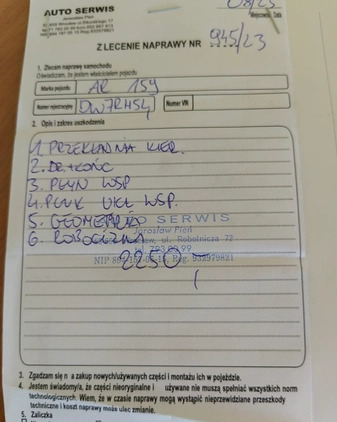 08/23
AUTO SERWIS
Jarosław Pień
Miejscowość, Data
ZLECENIE NAPRAWY NR 945/23
1. Zlecam naprawę samochodu
Oświadczam, że jestem właścicielem pojazdu
Marka pojazdu AR 159
Numer rejestracyjny DW7R454 Numer VIN
2. Opis i zakres uszkodzenia
1. PRZEKŁADNIA KIER.
2. DR.+KOŃC
3. PŁYN WSP
4. PŁUK UKŁ WSP.
5. GEOMETRIA
6. ROBOCIZNA
AUTO SERWIS
Jarosław Pień
ul. Robotnicza 72
2250
3. Zgadzam się na zakup nowych/używanych części i montażu ich w pojeździe.
4. Jestem świadomy/a, że części nieoryginalne i używane nie muszą spełniać wszystkich norm
technologicznych. Wiem, że w czasie naprawy mogą wystąpić nieprzewidziane przeszkody
techniczne i koszt naprawy może ulec zmianie.
5. Zaliczka